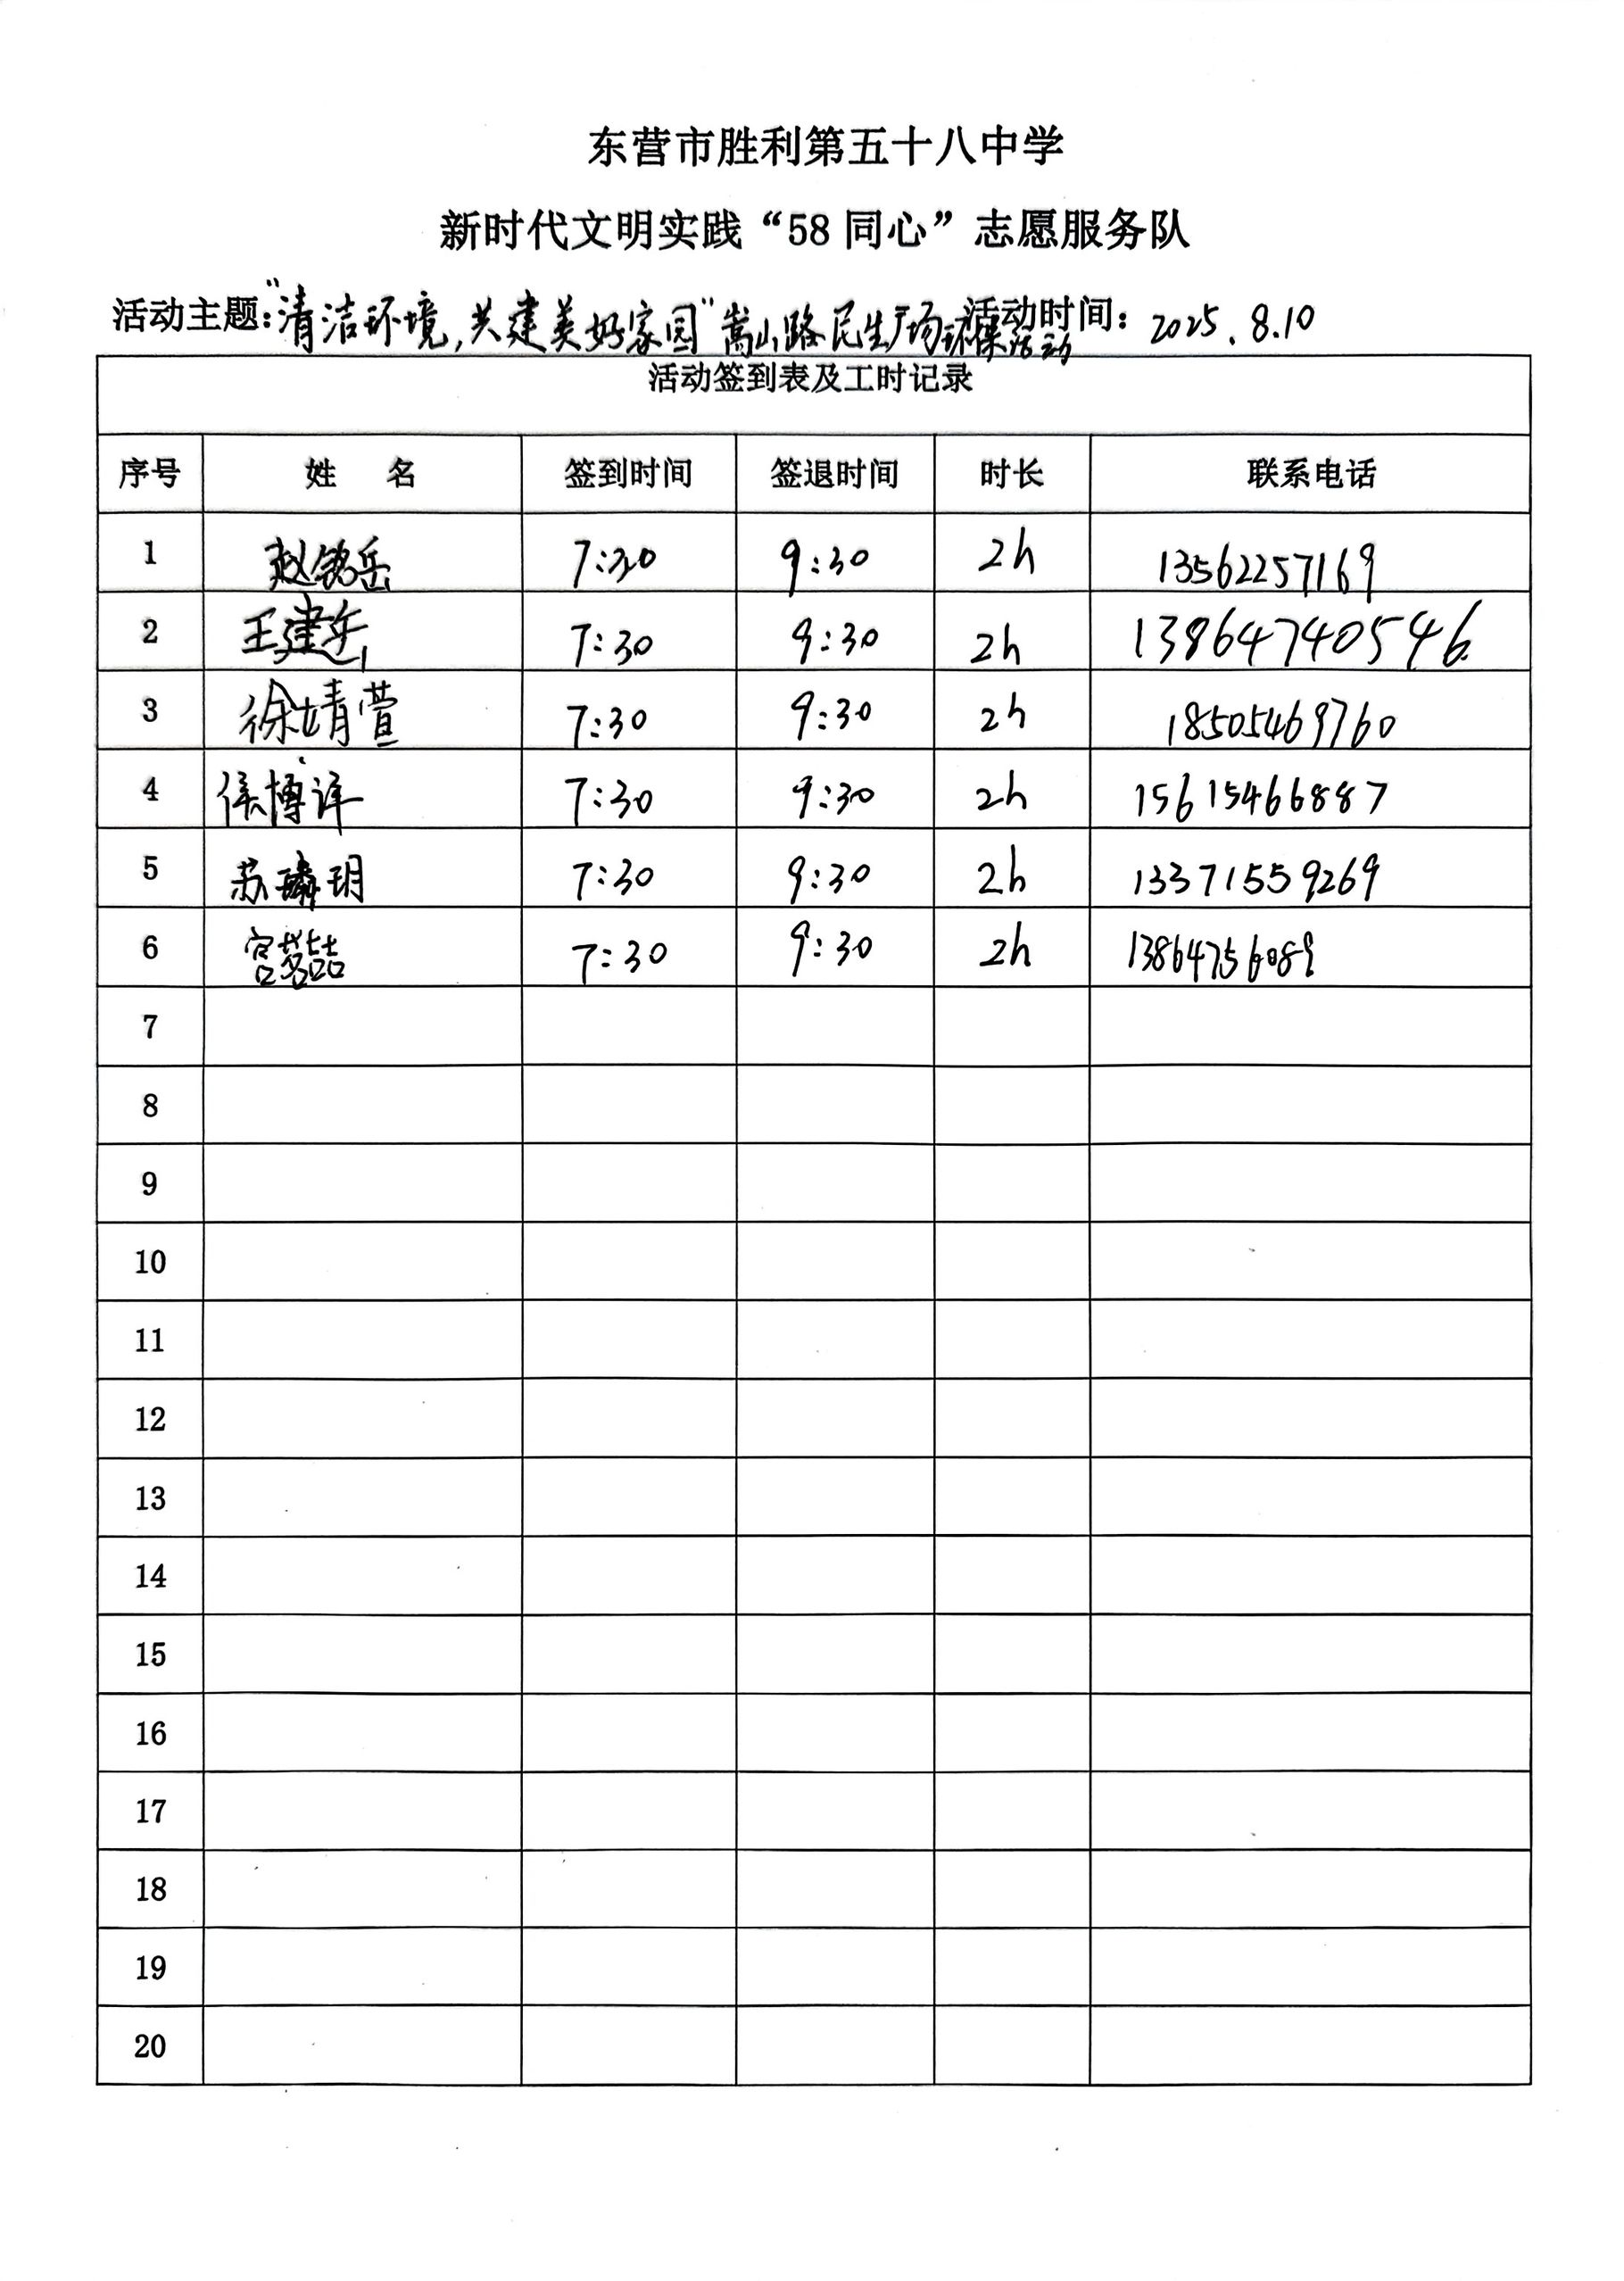 东营市胜利第五十八中学
新时代文明实践“58 同心”志愿服务队
活动主题：“清洁环境，共建美好家园”嵩山路民生广场环保活动 活动时间： 2025.8.10
活动签到表及工时记录
序号 姓 名 签到时间 签退时间 时长 联系电话
1 赵铭岳 7:30 9:30 2h 13562257169
2 王建 7:30 9:30 2h 13864740546
3 徐婧萱 7:30 9:30 2h 18505469760
4 侯博译 7:30 9:30 2h 15615466887
5 苏璘玥 7:30 9:30 2h 13371559269
6 宫茗喆 7:30 9:30 2h 13864756089
7
8
9
10
11
12
13
14
15
16
17
18
19
20